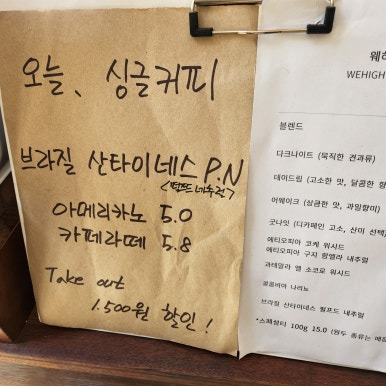 오늘、 싱글커피
브라질 산타이네스 P.N
<펄프드 네추럴>
아메리카노 5.0
카페라떼 5.8
Take out
1.500원 할인!
웨하
WEHIGH
블렌드
다크나이트 (묵직한 견과류)
데이드림 (고소한 맛, 달콤한 향
어웨이크 (상큼한 맛, 과일향미)
굿나잇 (디카페인 고소, 산미 선택)
에티오피아 코케 워시드
에티오피아 구지 함벨라 내추럴
과테말라 엘 소코로 워시드
콜롬비아 나리뇨
브라질 산타이네스 펄프드 내추럴
*스페셜티 100g 15.0 (원두 종류는 매장